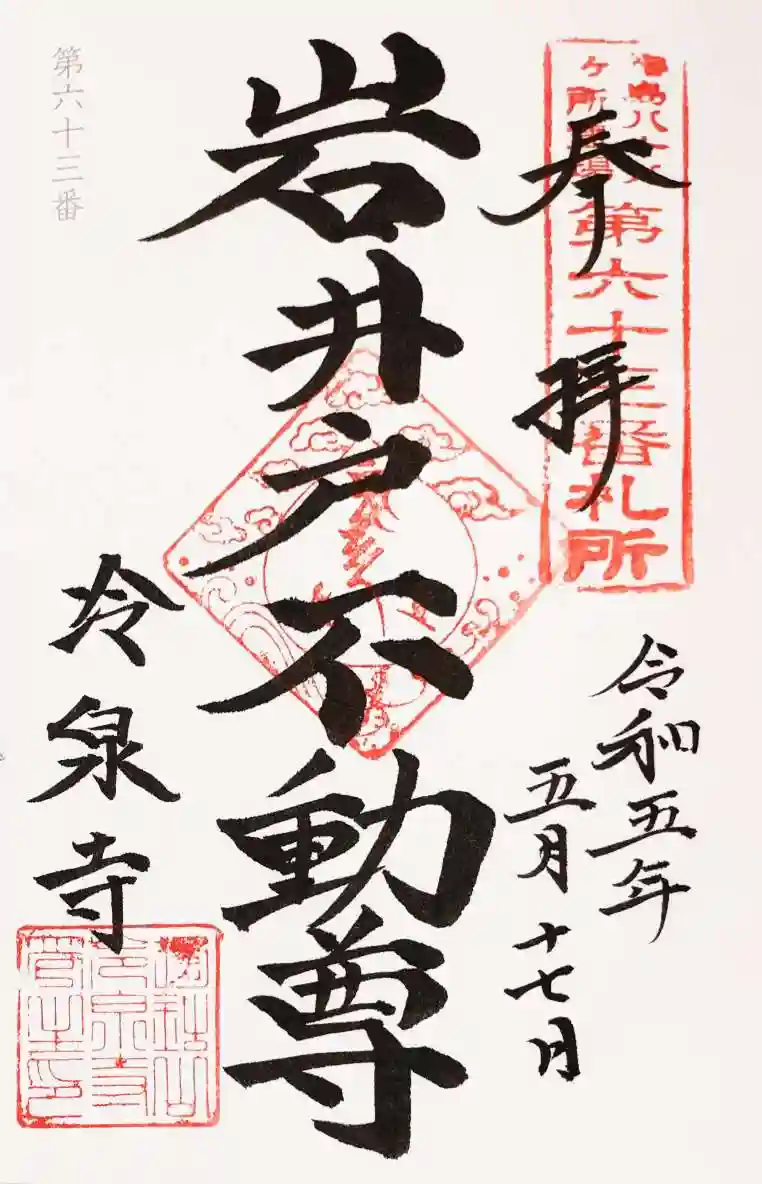 第六十三番札所
奉拝
令和五年
五月十七日
岩井戸不動尊
冷泉寺
第六十三番